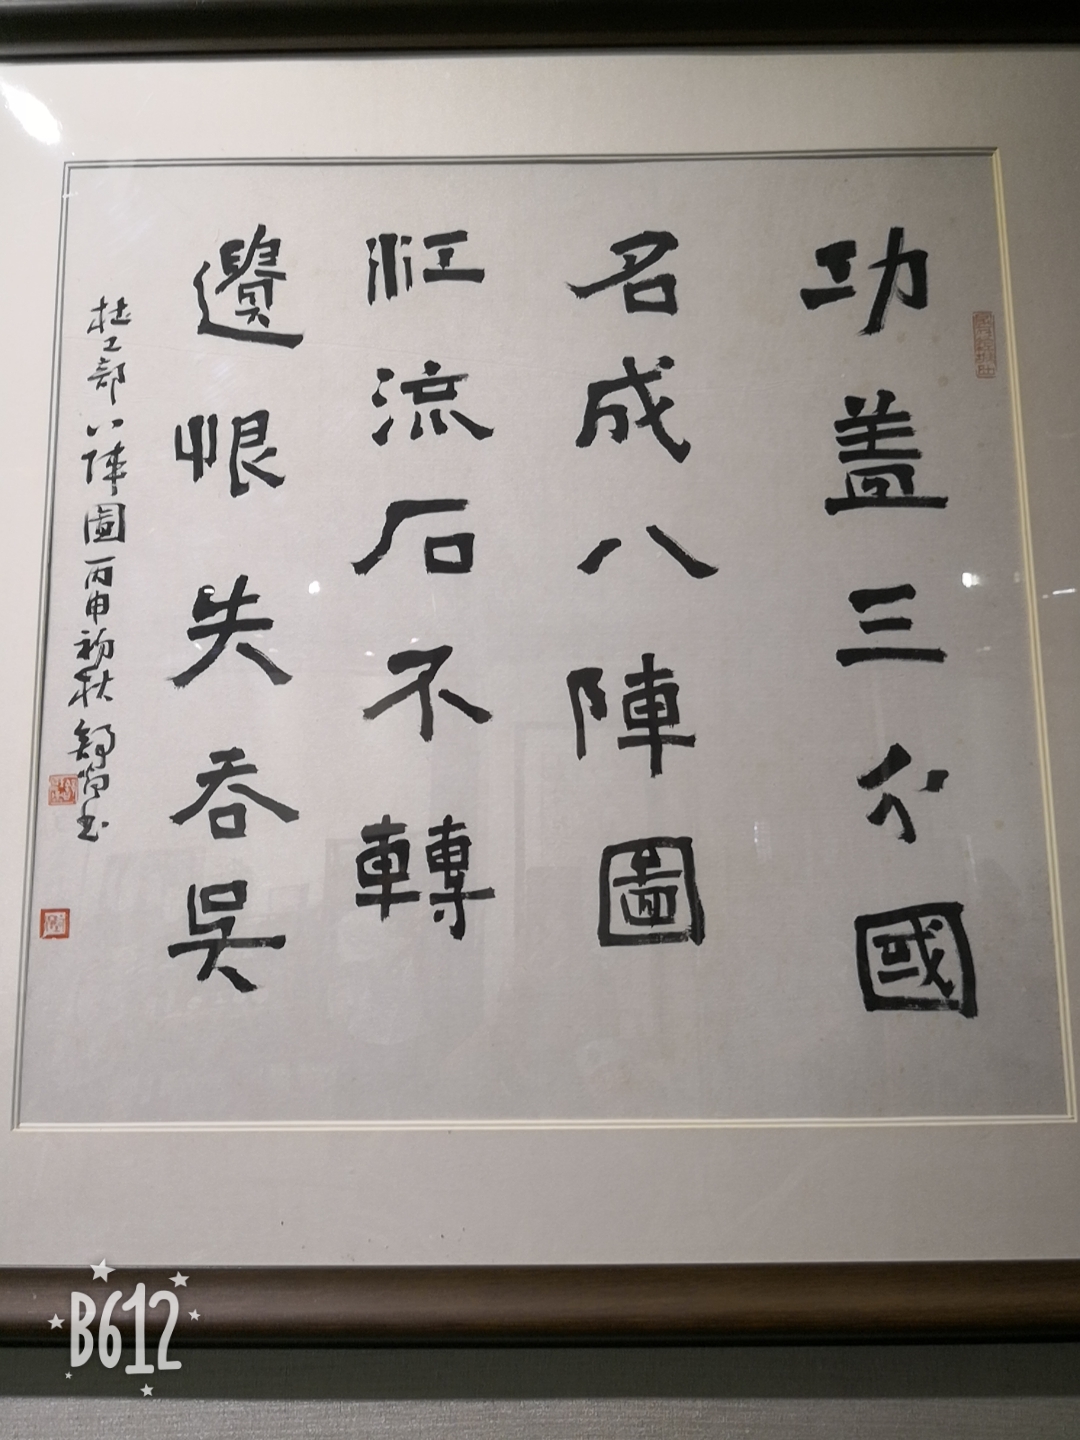 功盖三分國
名成八陣圖
江流石不轉
遺恨失吞吴
杜工部八陣圖丙申初秋
B612